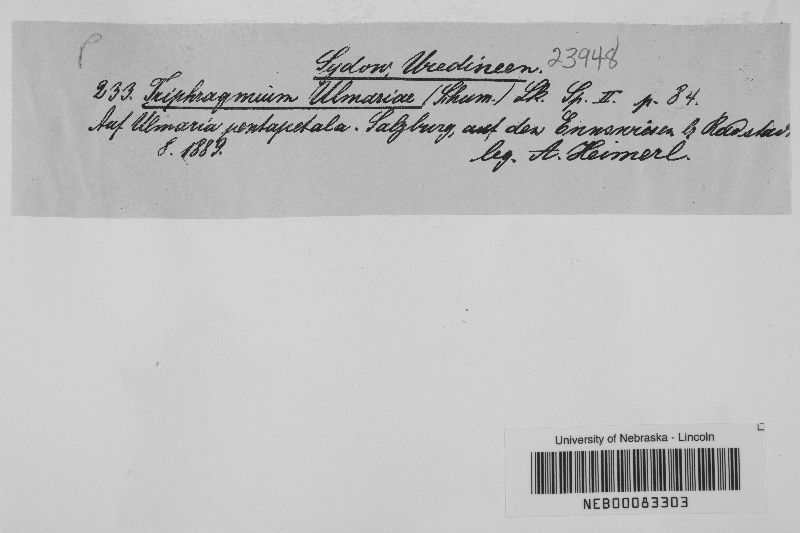 P
Sydow, Uredineen. 23948
233. Triphragmium Ulmariae (Schum.) Lk. Sp. II. p. 84.
Auf Ulmaria pentapetala. Salzburg, auf den Ennswiesen b. Radstadt,
8. 1889. leg. A. Heimerl.
University of Nebraska - Lincoln
NEB00083303